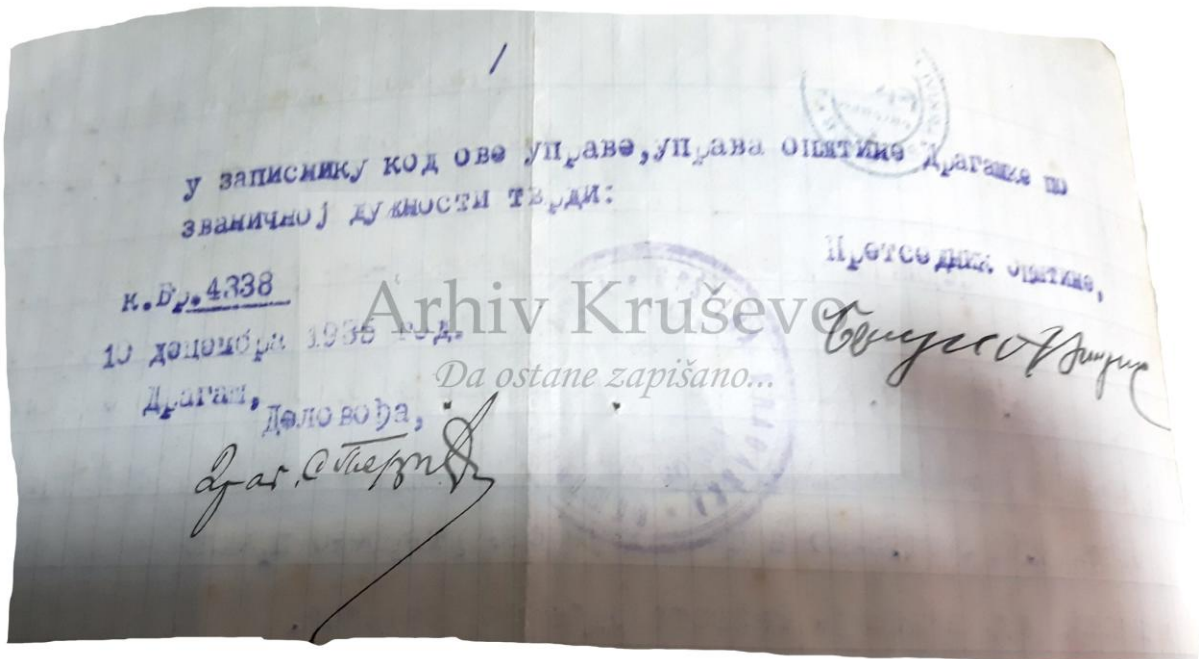 у записнику код ове управе, управа опятине Драгашке по
званичној дужности тврди:
Претседник опятине,
К.Бр.4338
10 децембра 1938 год.
Драгаш,
Деловођа,
Arhiv Kruševo
Da ostane zapišano...